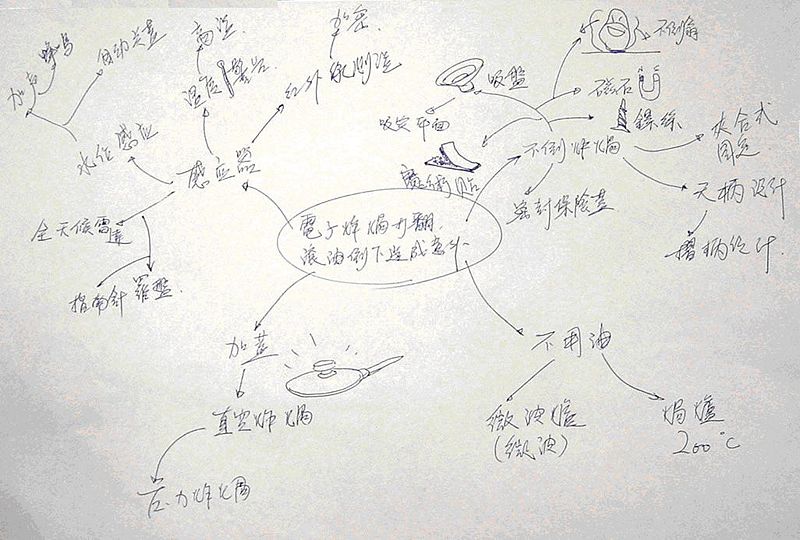 蜂鸣
加声
自动关盖
高温
温度
警告
加密
红外
水位感应
感应器
全天候雷達
指南針
羅盤
吸盤
吸定平面
魔術貼
不倒翁
磁石
鏍絲
不倒炸焗
夾合式
固定
密封保險蓋
無柄设计
摺柄设计
電子炸焗打翻
滾油倒下造成意外
加蓋
真空炸焗
压力炸焗
不用油
微波爐
(微波)
焗爐
200℃